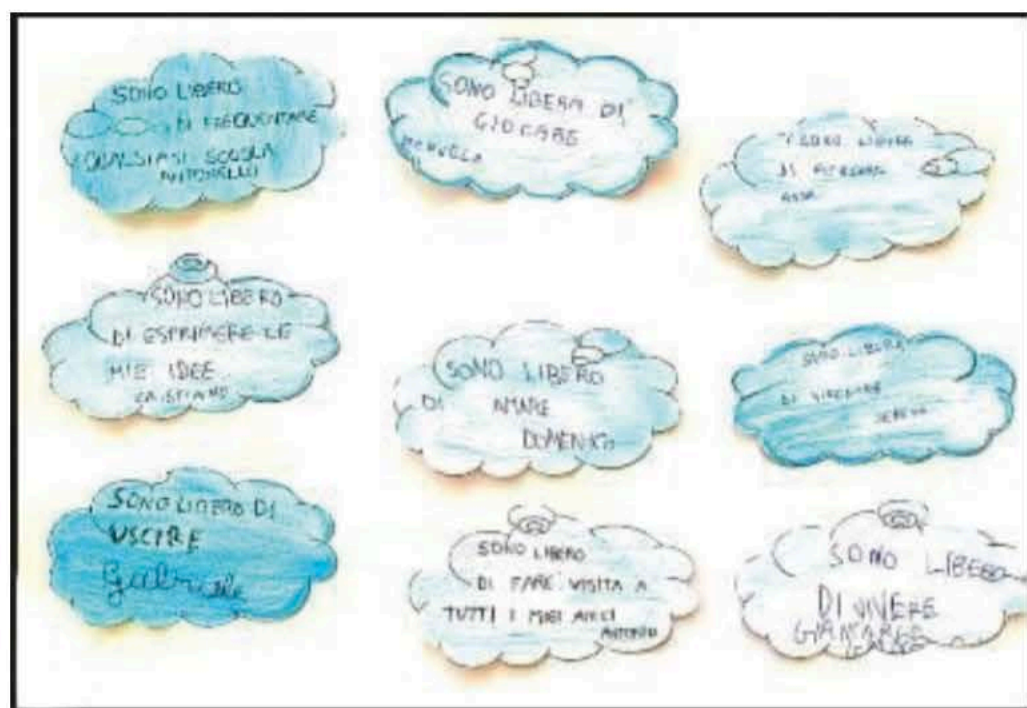 SONO LIBERO
DI FREQUENTARE
QUALSIASI SCUOLA
ANTONELLO
SONO LIBERA DI
GIOCARE
MANUELA
SONO LIBERA
DI
SONO LIBERO
DI ESPRIMERE LE
MIE IDEE
CRISTIANO
SONO LIBERO
DI AMARE
DOMENICO
SONO LIBERA
DI
SONO LIBERO DI
USCIRE
Gabriele
SONO LIBERO
DI FARE VISITA A
TUTTI I MIEI AMICI
ANTONIO
SONO LIBERO
DI VIVERE